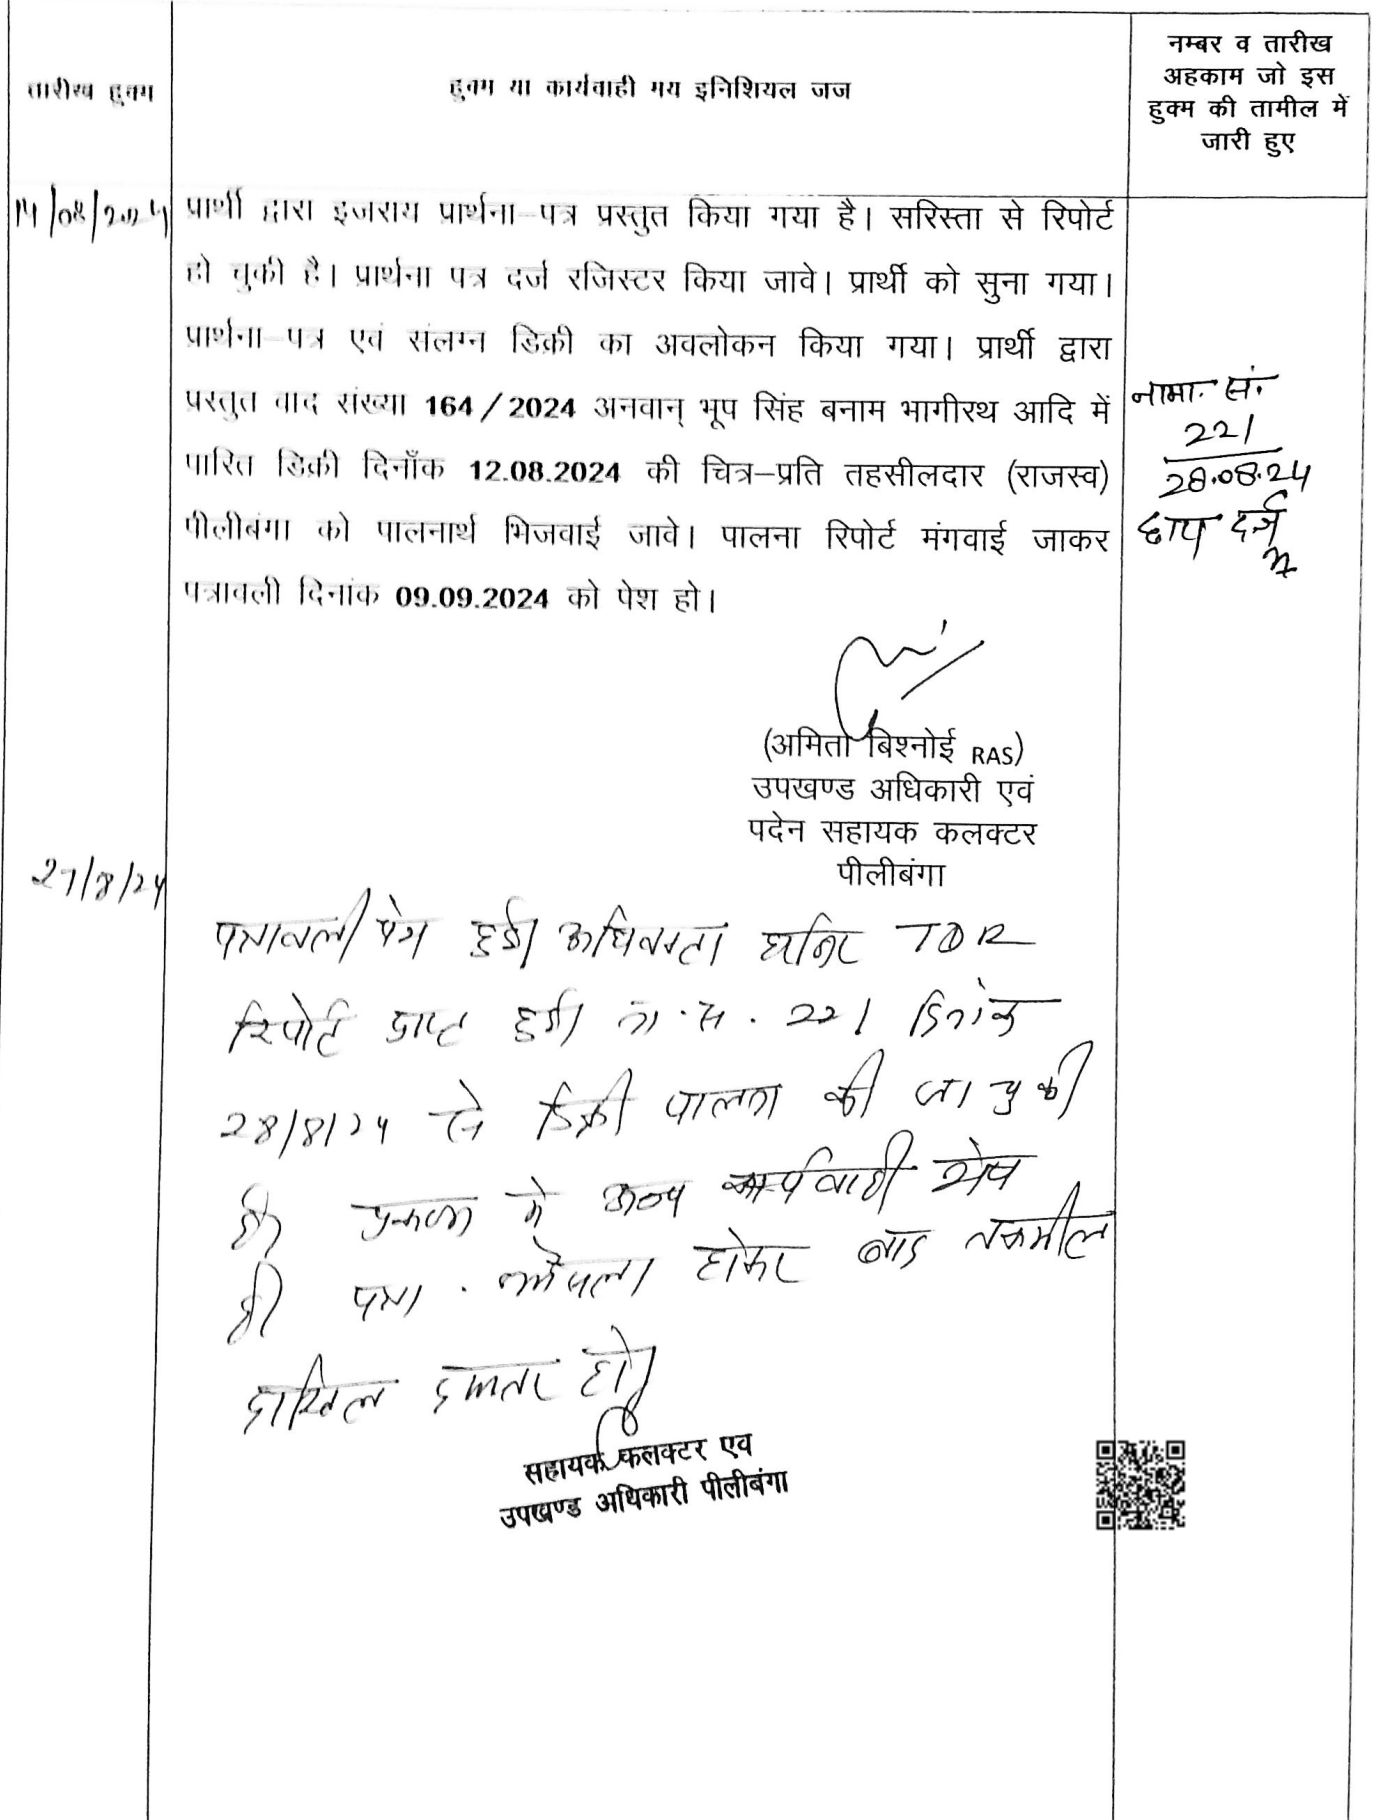 तारीख हुक्म
हुक्म या कार्यवाही मय इनिशियल जज
नम्बर व तारीख
अहकाम जो इस
हुक्म की तामील में
जारी हुए
14/08/2024
प्रार्थी द्वारा इजराय प्रार्थना-पत्र प्रस्तुत किया गया है। सरिस्ता से रिपोर्ट
हो चुकी है। प्रार्थना पत्र दर्ज रजिस्टर किया जावे। प्रार्थी को सुना गया।
प्रार्थना-पत्र एवं संलग्न डिक्री का अवलोकन किया गया। प्रार्थी द्वारा
प्रस्तुत वाद संख्या 164/2024 अनवान् भूप सिंह बनाम भागीरथ आदि में
पारित डिक्री दिनाँक 12.08.2024 की चित्र-प्रति तहसीलदार (राजस्व)
पीलीबंगा को पालनार्थ भिजवाई जावे। पालना रिपोर्ट मंगवाई जाकर
पत्रावली दिनांक 09.09.2024 को पेश हो।
नामा. सं.
221
28.08.24
द्वारा दर्ज
(अमिता बिश्नोई RAS)
उपखण्ड अधिकारी एवं
पदेन सहायक कलक्टर
पीलीबंगा
27/8/24
पत्रावली पेश हुई। अधिवक्ता TDR
रिपोर्ट प्राप्त हुई। ना.स. 221 दिनांक
28/8/24 से डिक्री पालना की जा चुकी
है। प्रकरण में अन्य कार्यवाही शेष
पत्रा. फैसला होकर बाद तकमील
दाखिल दफ्तर हो।
सहायक कलक्टर एव
उपखण्ड अधिकारी पीलीबंगा